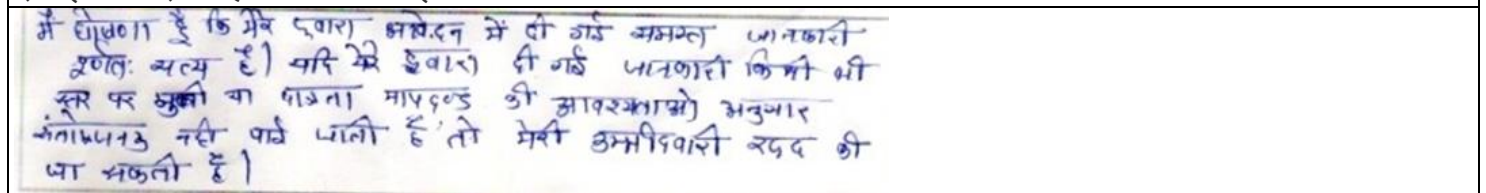 मै घोषणा हूँ कि मेरे द्वारा आवेदन में दी गई समस्त जानकारी
पूर्णत: सत्य है। यदि मेरे द्वारा दी गई जानकारी किसी भी
स्तर पर या पात्रता मापदण्ड की आवश्यताओ अनुसार
संतोषजनक नही पाई जाती है तो मेरी उम्मीदवारी रदद की
जा सकती है।